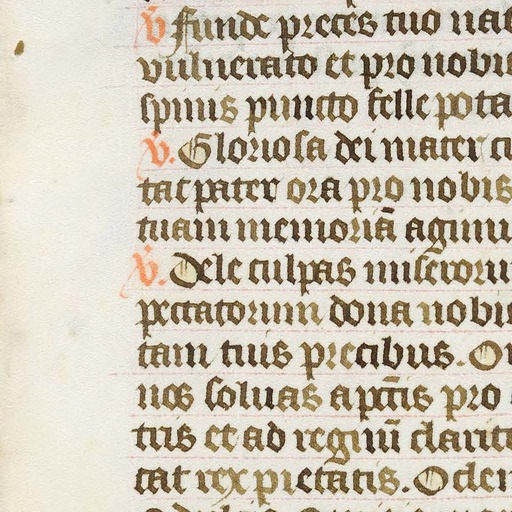 v funde preces tuo nat
vulnerato et pro nobis
spinis puncto felle pota
v. Gloriosa dei mater cu
tat pater ora pro nobis
tuam memoriā agimu
v. Dele culpas miseroru
peccatorum dona nobis
tam tuis precibus. O
nos soluas a pctīs pro
tris et ad regnū clarit
tat rex pietatis. O clem